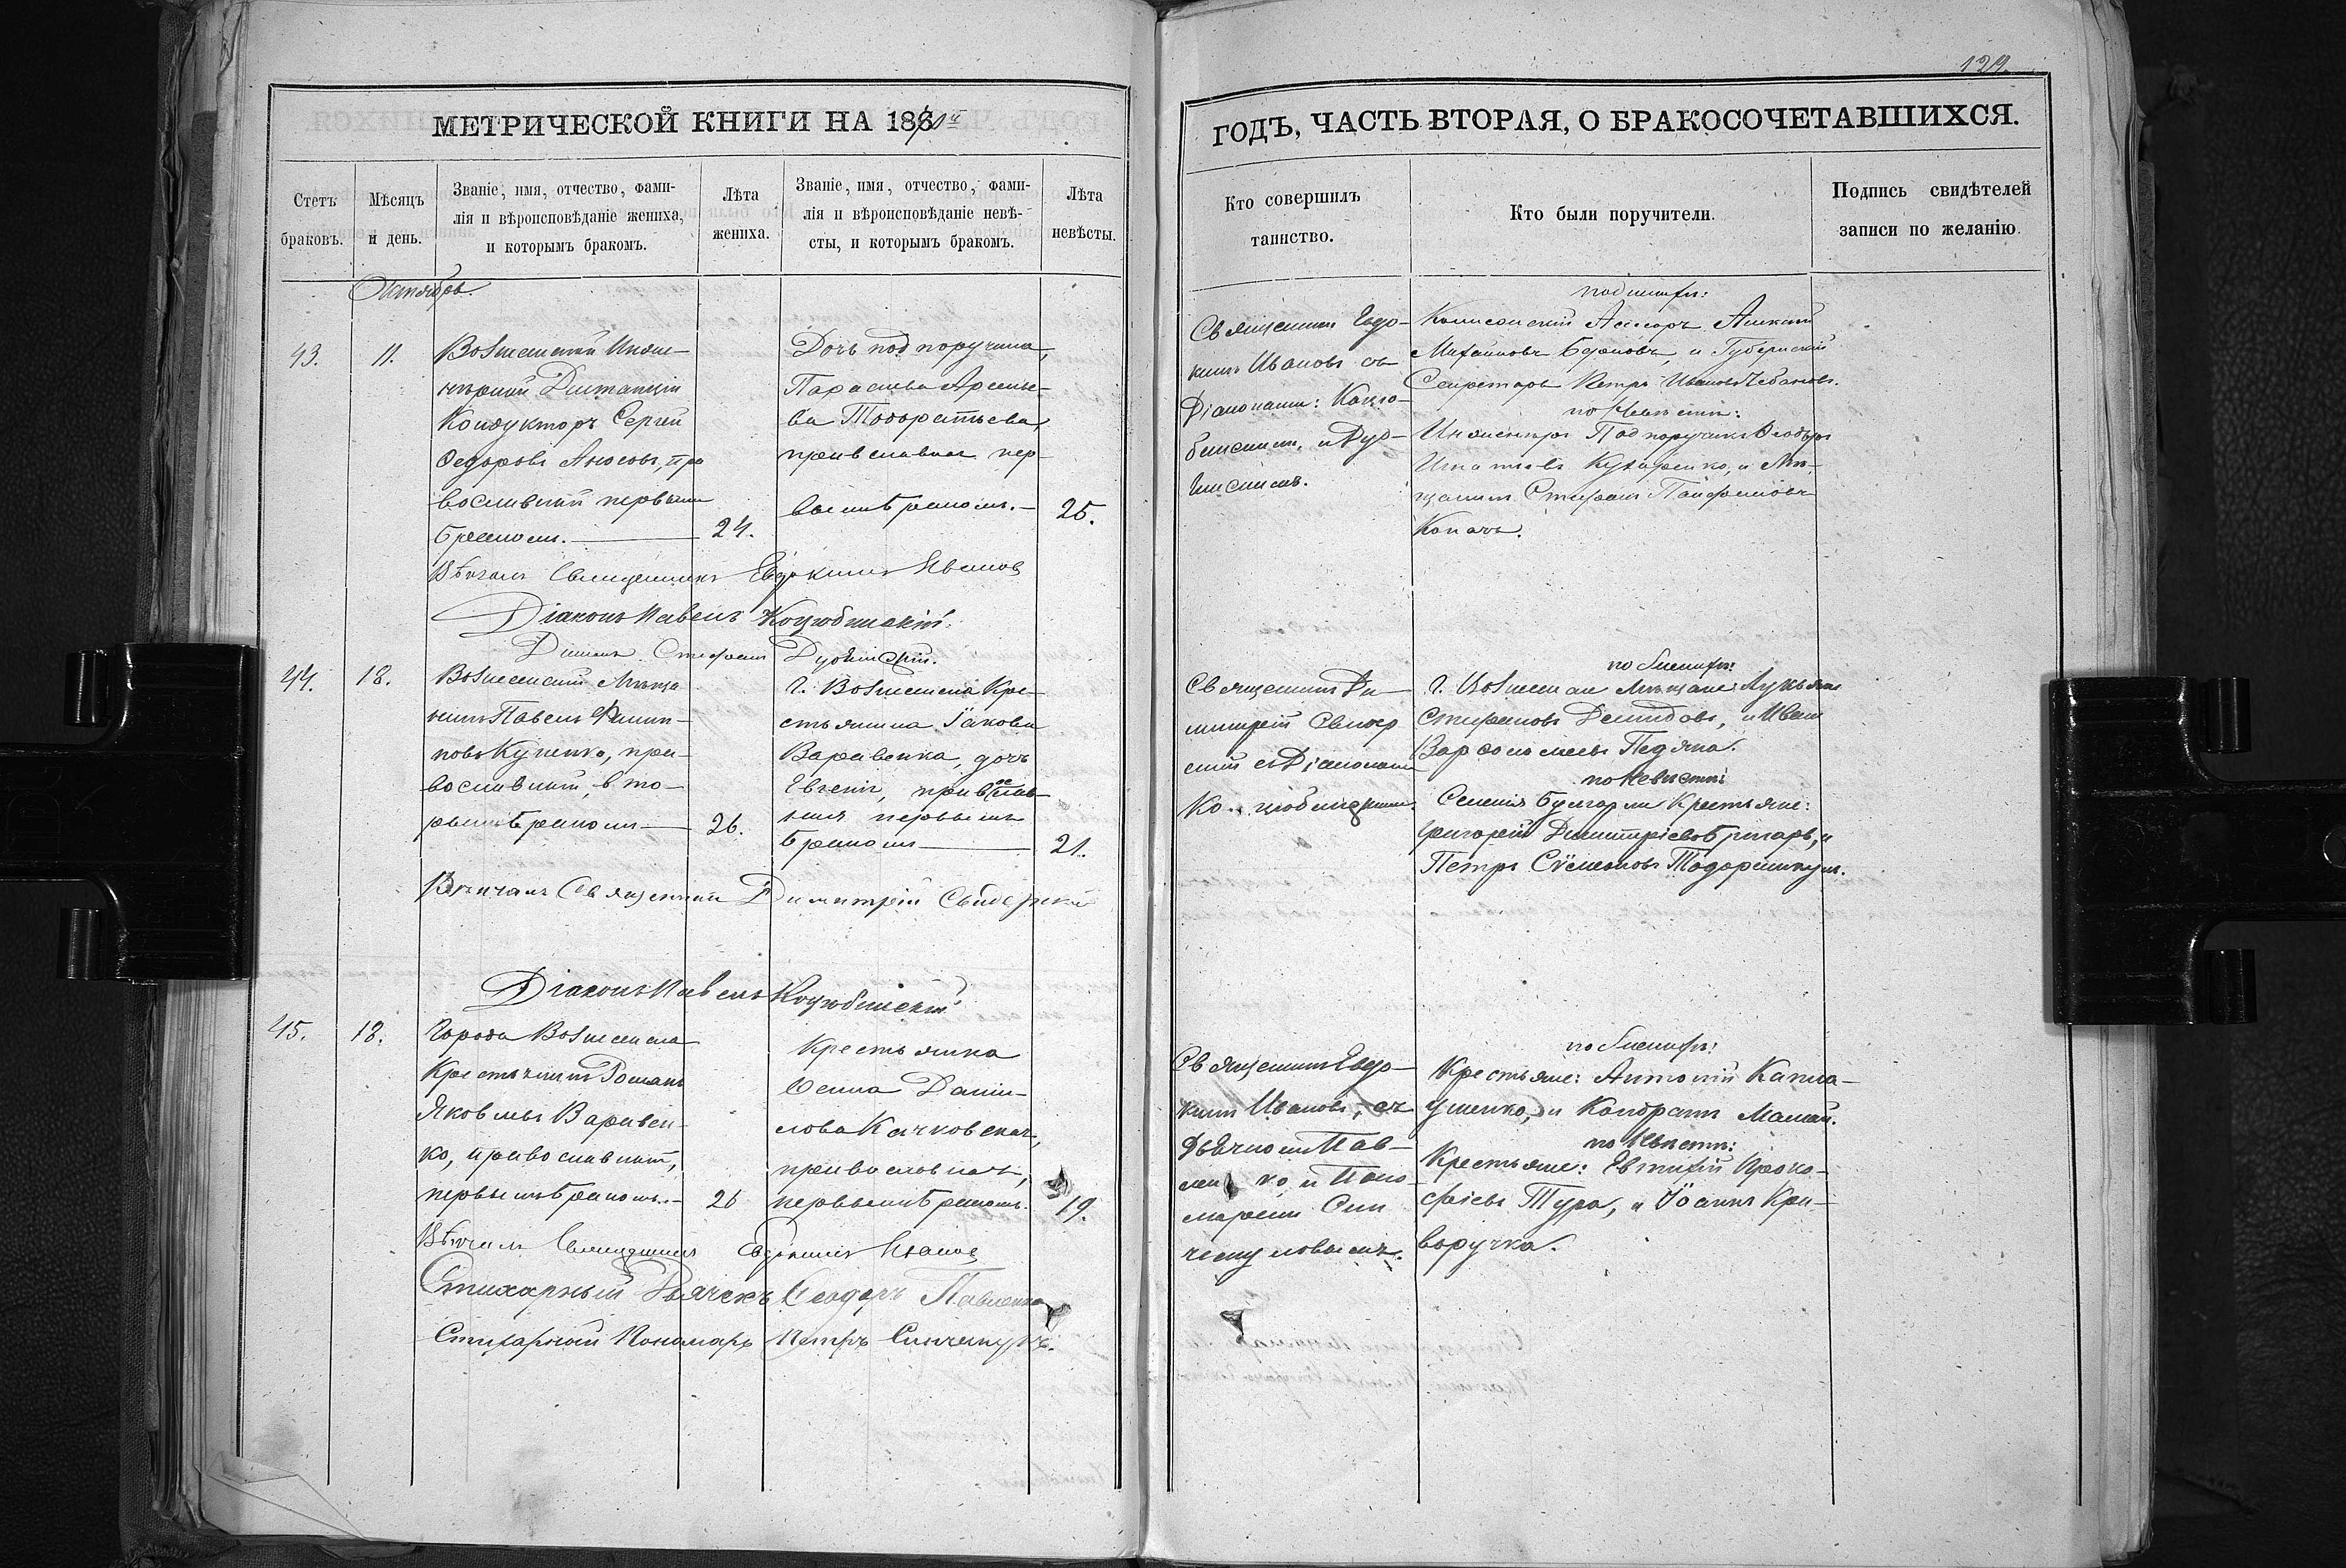 129.
МЕТРИЧЕСКОЙ КНИГИ НА 1870й
ГОДЪ, ЧАСТЬ ВТОРАЯ, О БРАКОСОЧЕТАВШИХСЯ.
Счетъ браковъ.
Мѣсяцъ и день.
Званіе, имя, отчество, фами-
лія и вѣроисповѣданіе жениха,
и которымъ бракомъ.
Лѣта
жениха.
Званіе, имя, отчество, фами-
лія и вѣроисповѣданіе невѣ-
сты, и которымъ бракомъ.
Лѣта
невѣсты.
Кто совершилъ
таинство.
Кто были поручители.
Подпись свидѣтелей
записи по желанію.
Октябрь.
43.
11.
Вознесенской Инже-
нерной Дистанціи
Кондукторъ Сергей
Федоровъ Аносовъ, пра
вославный первымъ
бракомъ.
24.
Дочь подпоручика,
Параскева Арсенье-
ва
православная пер-
вымъ бракомъ.
25.
Священникъ Евдо-
кимъ Ивановъ съ
Діаконами: Коцю-
бинскимъ, и Дуб-
инскимъ.
по женихѣ:
Секретарь Петръ Ивановъ Чебановъ.
по Невѣстѣ:
Инженеръ Подпоручикъ Ѳеодоръ
Игнатьевъ Кухаренко, и Мѣ-
щанинъ Стефанъ
Копачъ.
Вѣнчалъ Священникъ Евдокимъ Ивановъ
Діаконъ Павелъ Коцюбинскій.
Діаконъ Стефанъ Дубинскій.
44.
18.
Вознесенскій Мѣща
нинъ Павелъ Филип-
повъ Куценко, пра-
вославный, вто-
рымъ бракомъ
26.
г. Вознесенска Кре-
стьянина Іакова
Варивенка, дочь
Евгенія, православ-
ная первымъ
бракомъ
21.
Священникъ Ди-
митрій Свидер
скій съ Діакономъ
Коцюбинскимъ
по женихѣ:
г. Вознесенска Мѣщане: Лукьянъ
Стефановъ Демидовъ, и Иванъ
Варфоломеевъ Педяка.
по Невѣстѣ:
Селенія Булгарки Крестьяне:
Григорій Димитріевъ Бригарь, и
Петръ Сѵмеоновъ
Вѣнчалъ Священникъ Димитрій Свидерскій
Діаконъ Павелъ Коцюбинскій
45.
18.
Города Вознесенска
Крестьянинъ Романъ
Яковлевъ Варивен-
ко, православный,
первымъ бракомъ.
26
Крестьянка
Ксенія Даніи-
лова Качковская,
православная,
первымъ бракомъ.
19.
Священникъ Евдо-
кимъ Ивановъ, съ
Дьячкомъ Пав-
ленко и Поно
маремъ Син
чекуловымъ.
по женихѣ:
Крестьяне: Антоній Капла-
ушенко, и Кондратъ Мамай.
по Невѣстѣ:
Крестьяне: Евтихій Проко-
фіевъ Тура, и Іоаннъ Кри-
воручка.
Вѣнчалъ Священникъ Евдокимъ Ивановъ
Стихарный Дьячекъ Ѳеодоръ Павленко
Стихарный Пономарь Петръ Синчекулъ.